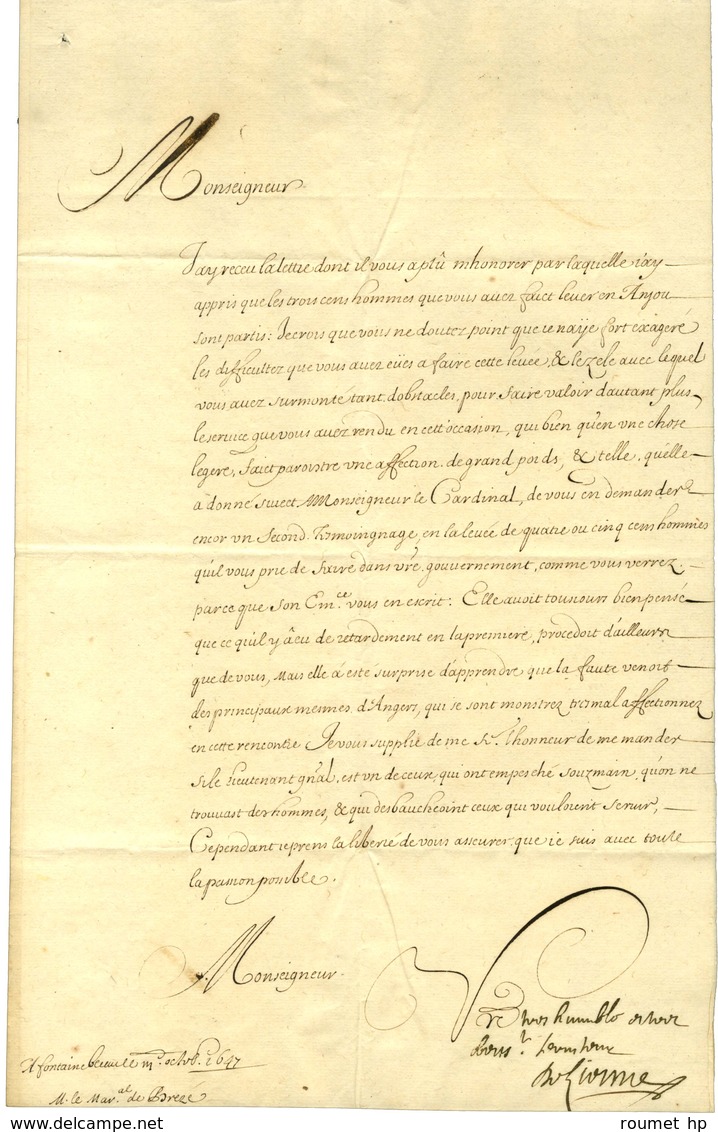 Monseigneur.
J'ay receu la lettre dont il vous a plû m'honorer par laquelle i'ay
appris que les trois cens hommes que vous auez faict leuer en Anjou
sont partis: Je crois que vous ne doutez point que ie n'aÿe fort exageré
les difficultez que vous auez eües a faire cette leuée, & le zele auec lequel
vous auez surmonté tant d'obstacles, pour faire valoir d'autant plus
le seruice que vous auez rendu en cett'occasion, qui bien qu'en vne chose
legere, faict paroistre vne affection de grand poids, & telle, qu'elle
à donné suiect A Monseigneur le Cardinal, de vous en demander
encor vn second tesmoingnage, en la leuée de quatre ou cinq cens hommes
qu'il vous prie de faire dans vr̃e gouuernement, comme vous verrez
par ce que son Em.ce vous en escrit: Elle auoit tousiours bien pensé
que ce qu'il y à eu de retardement en la premiere, procedoit d'ailleurs
que de vous, Mais elle à esté surprise d'apprendre que la faute venoit
des principaux mesmes d'Angers, qui se sont monstrez tres mal affectionnez
en cette rencontre Je vous supplie de me fr̃e l'honneur de me mander
si le lieutenant gñal, est vn de ceux qui ont empesché souz main, qu'on ne
trouuast des hommes, & qui desbauchoint ceux qui vouloient seruir,
Cependant ie prens la liberté de vous asseurer que ie suis auec toute
la passion possible.
Monseigneur.
Vr̃e tres humble et tres
obeiss.t seruiteur
De Lionne
A fontainebeleau le octob. 1647
M. le Mar.al de Brezé
roumet hp